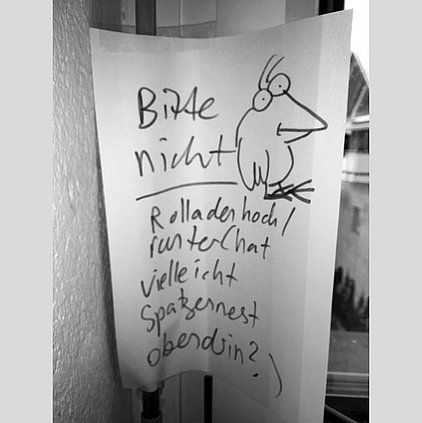 Bitte
nicht
Rolladen hoch/
runter (hat
vielleicht
Spatzennest
obendrin?)